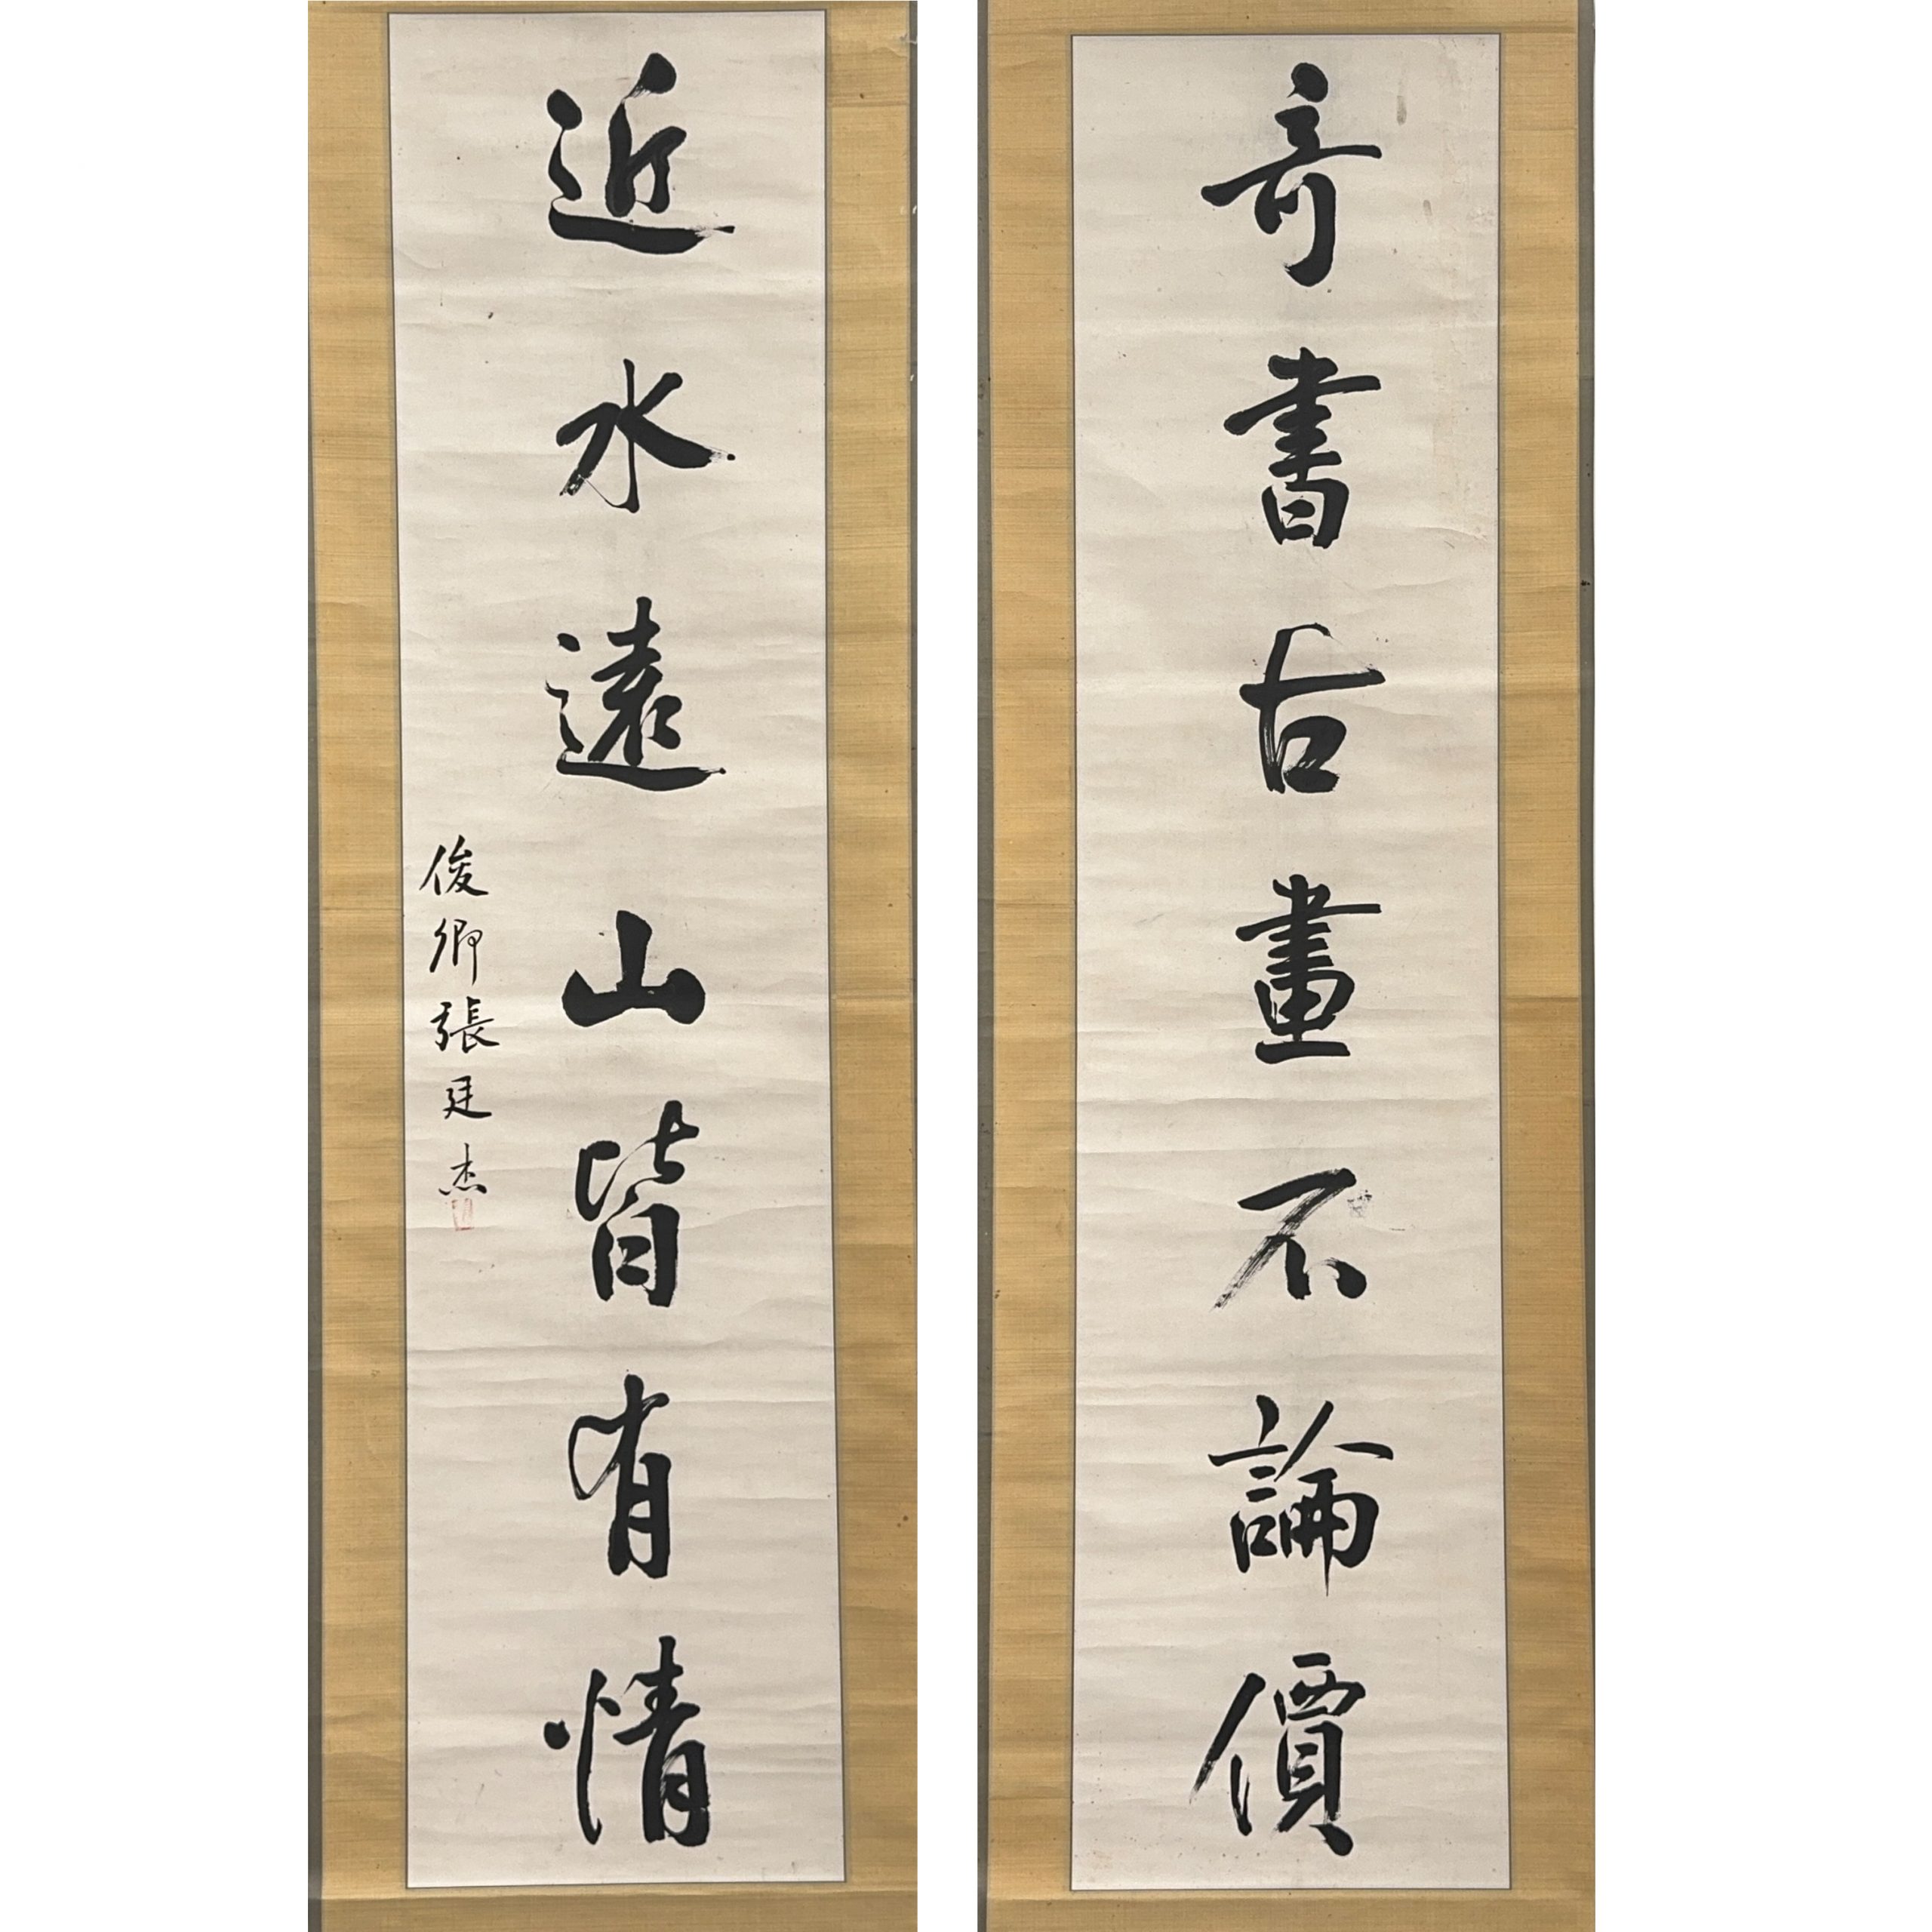 奇書古畫不論價
近水遠山皆有情
俊卿張廷杰